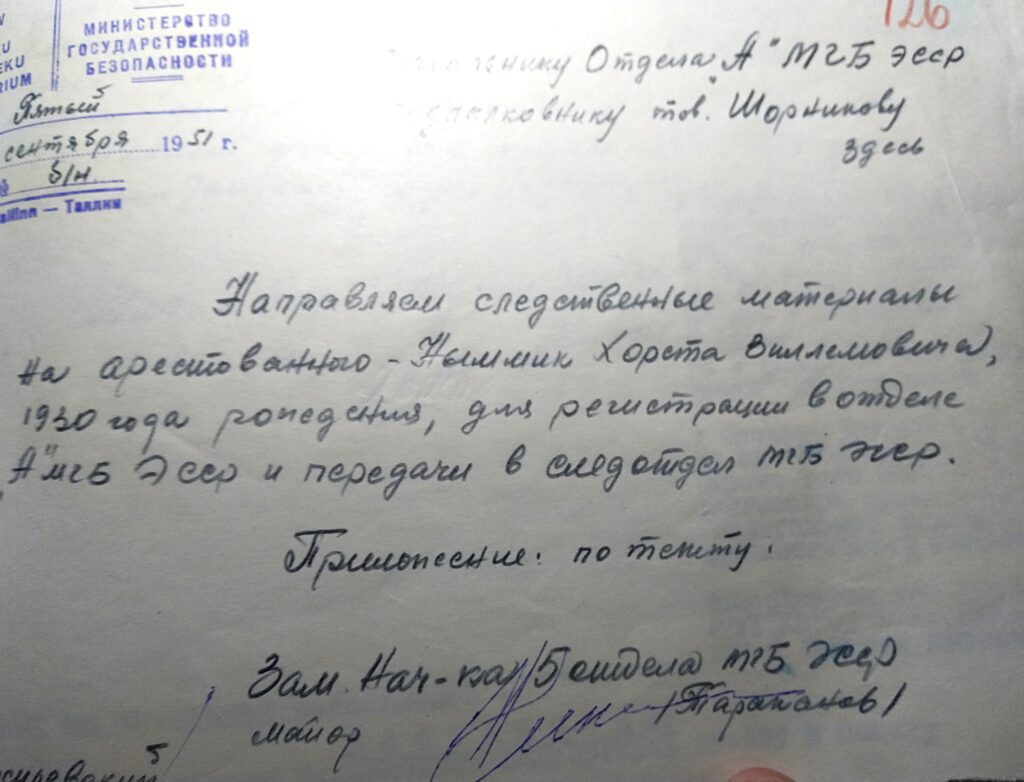 126
МИНИСТЕРСТВО
ГОСУДАРСТВЕННОЙ
БЕЗОПАСНОСТИ
Пятый
сентября 1951 г.
б/н.
Таллин
Отдела „А" МГБ ЭССР
тов. Шорникову
здесь
Направляем следственные материалы
на арестованного - Ныммик Хорста Виллемовича,
1930 года рождения, для регистрации в отделе
„А" МГБ ЭССР и передачи в следотдел МГБ ЭССР.
Приложение: по тексту.
Зам. Нач-ка 5 отдела МГБ ЭССР
майор /Тараканов/